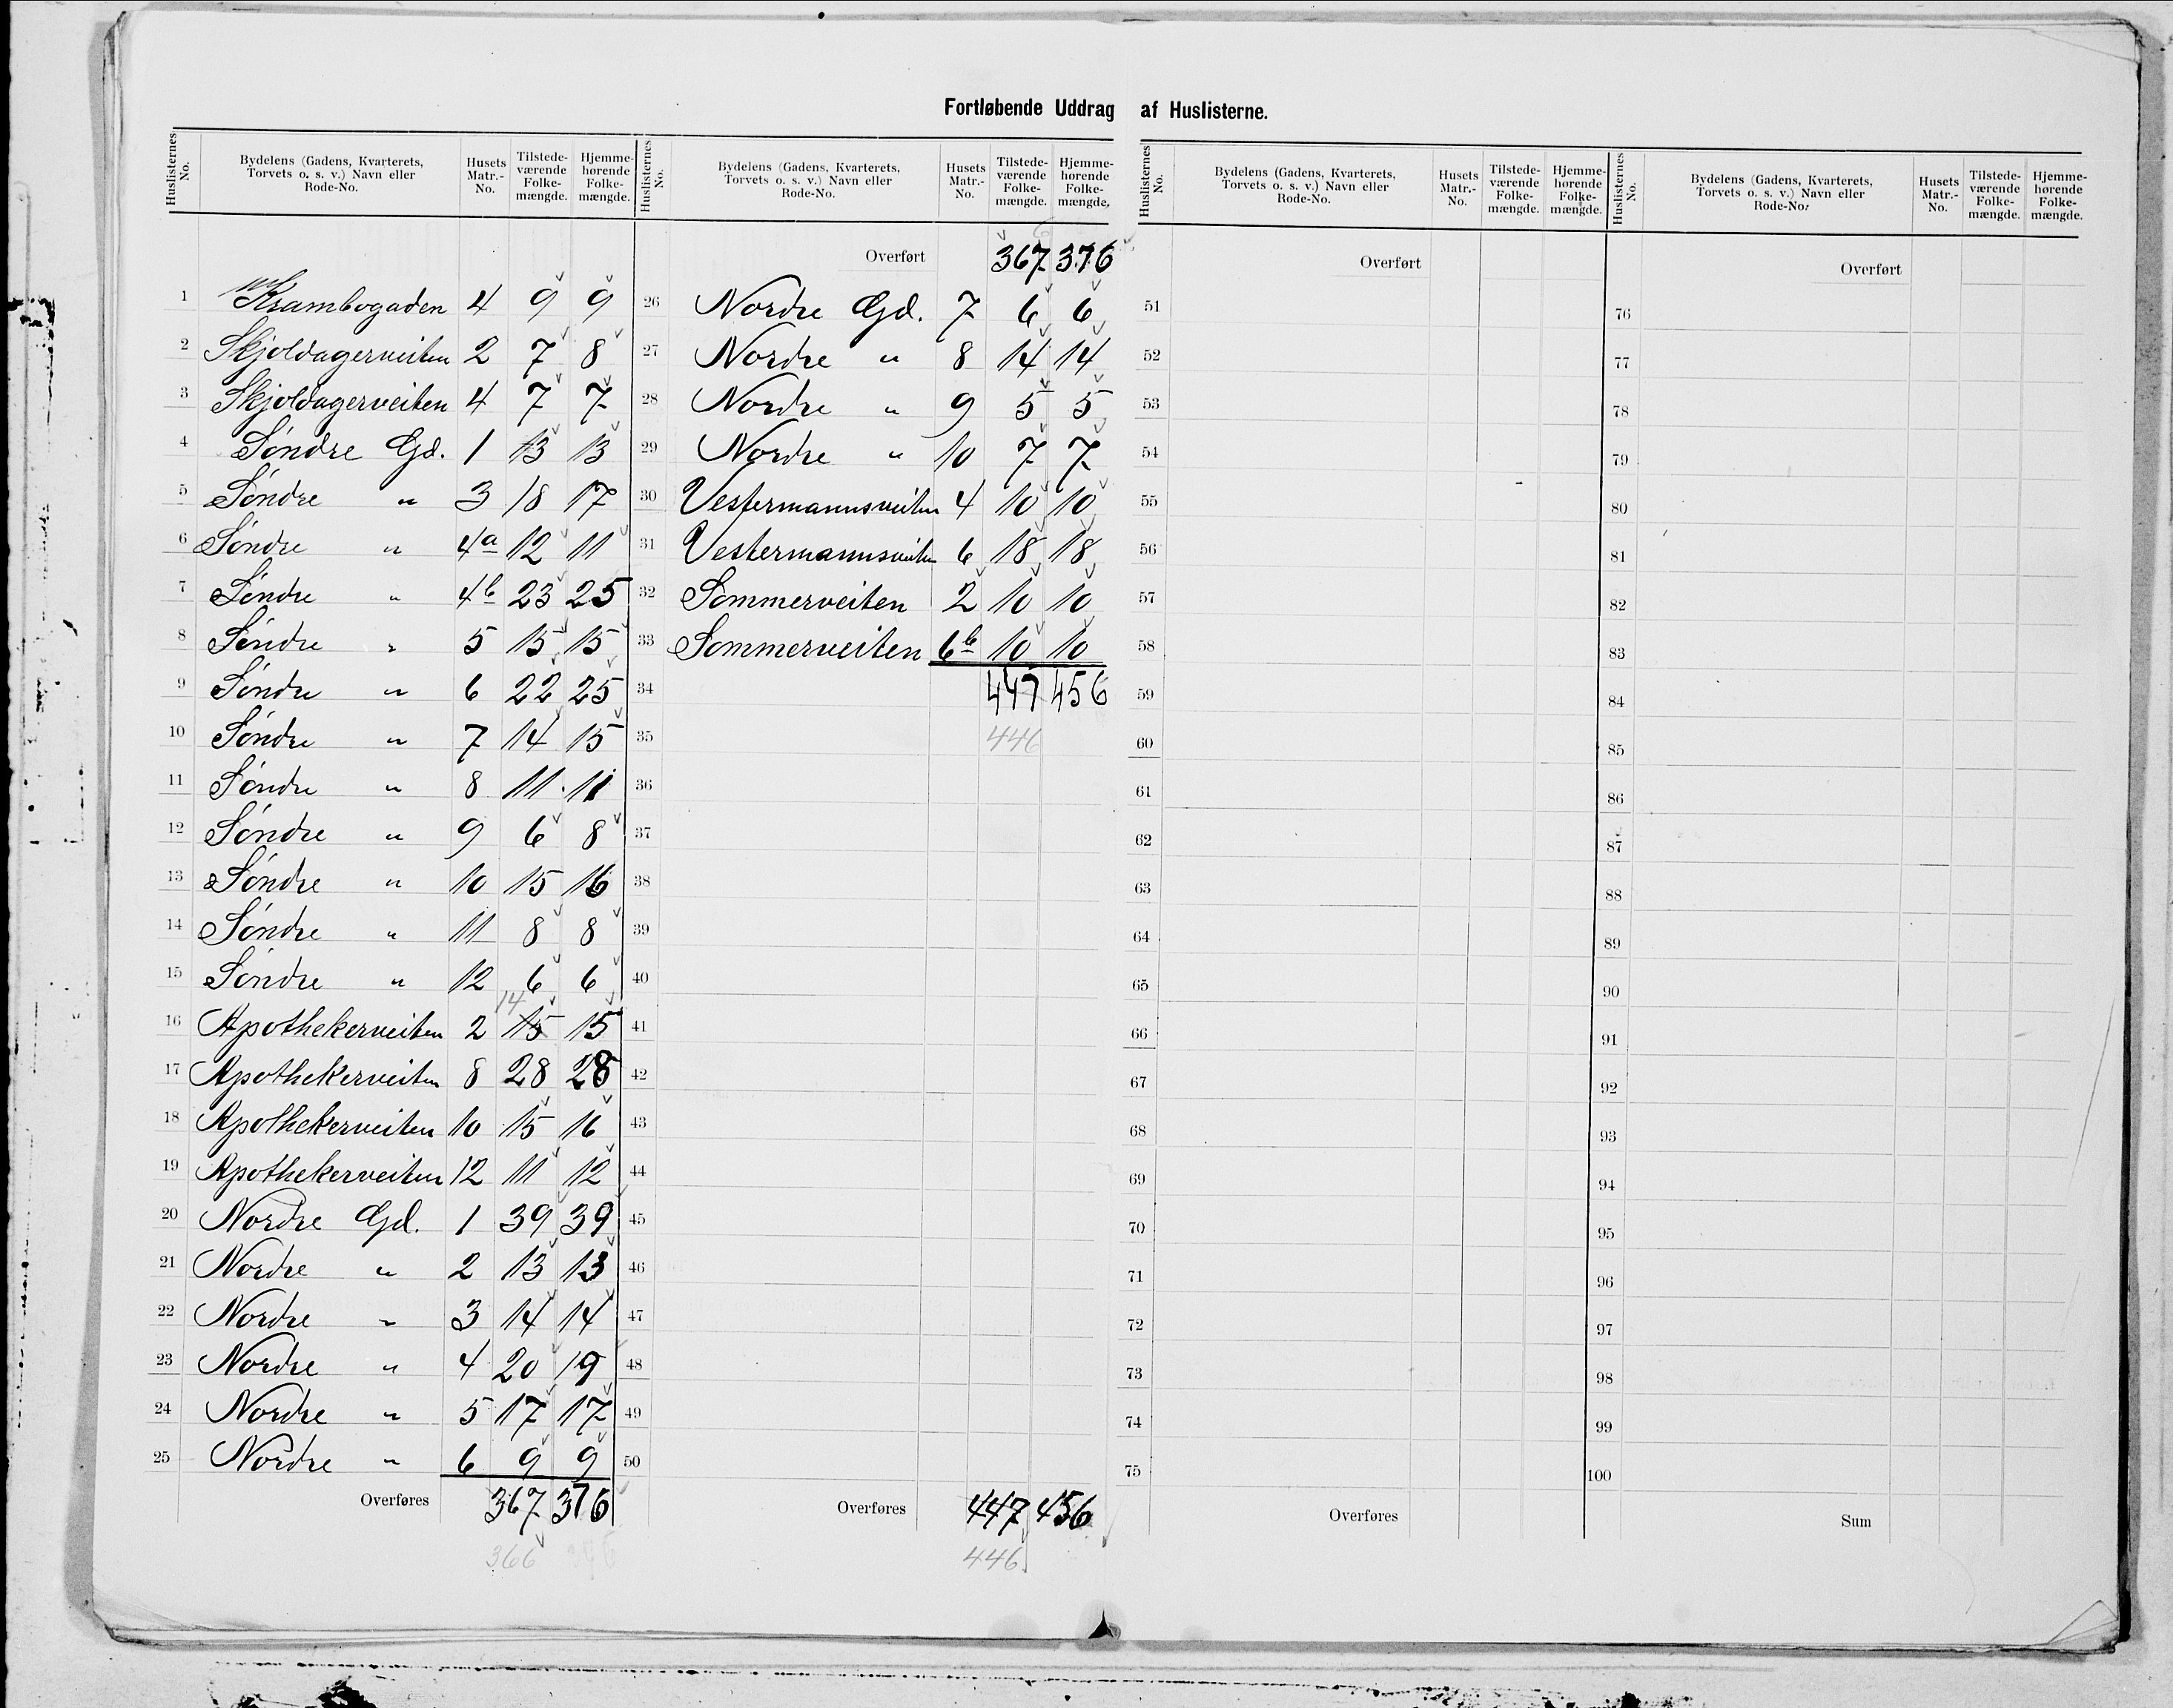 Fortløbende Uddrag af Huslisterne.
Huslisternes No. Bydelens (Gadens, Kvarterets, Torvets o. s. v.) Navn eller Rode-No. Husets Matr.-No. Tilstedeværende Folkemængde. Hjemmehørende Folkemængde. Huslisternes No. Bydelens (Gadens, Kvarterets, Torvets o. s. v.) Navn eller Rode-No. Husets Matr.-No. Tilstedeværende Folkemængde. Hjemmehørende Folkemængde. Huslisternes No. Bydelens (Gadens, Kvarterets, Torvets o. s. v.) Navn eller Rode-No. Husets Matr.-No. Tilstedeværende Folkemængde. Hjemmehørende Folkemængde. Huslisternes No. Bydelens (Gadens, Kvarterets, Torvets o. s. v.) Navn eller Rode-No. Husets Matr.-No. Tilstedeværende Folkemængde. Hjemmehørende Folkemængde.
Overført 367 376 Overført Overført
1 Krambogaden 4 9 9 26 Nordre Gd. 7 6 6 51 76
2 Skjoldagerveiten 2 7 8 27 Nordre " 8 14 14 52 77
3 Skjoldagerveiten 4 7 7 28 Nordre " 9 5 5 53 78
4 Søndre Gd. 1 13 13 29 Nordre " 10 7 7 54 79
5 Søndre " 3 18 17 30 Vestermannsveiten 4 10 10 55 80
6 Søndre " 4a 12 11 31 Vestermannsveiten 6 18 18 56 81
7 Søndre " 4b 23 25 32 Sommerveiten 2 10 10 57 82
8 Søndre " 5 15 15 33 Sommerveiten 6b 10 10 58 83
9 Søndre " 6 22 25 34 447 456 59 84
10 Søndre " 7 14 15 35 446 60 85
11 Søndre " 8 11 11 36 61 86
12 Søndre " 9 6 8 37 62 87
13 Søndre " 10 15 16 38 63 88
14 Søndre " 11 8 8 39 64 89
15 Søndre " 12 6 6 40 65 90
14
16 Apothekerveiten 2 15 15 41 66 91
17 Apothekerveiten 8 28 28 42 67 92
18 Apothekerveiten 10 15 16 43 68 93
19 Apothekerveiten 12 11 12 44 69 94
20 Nordre Gd. 1 39 39 45 70 95
21 Nordre " 2 13 13 46 71 96
22 Nordre " 3 14 14 47 72 97
23 Nordre " 4 20 19 48 73 98
24 Nordre " 5 17 17 49 74 99
25 Nordre " 6 9 9 50 75 100
Overføres 367 376 Overføres 447 456 Overføres Sum
366 446